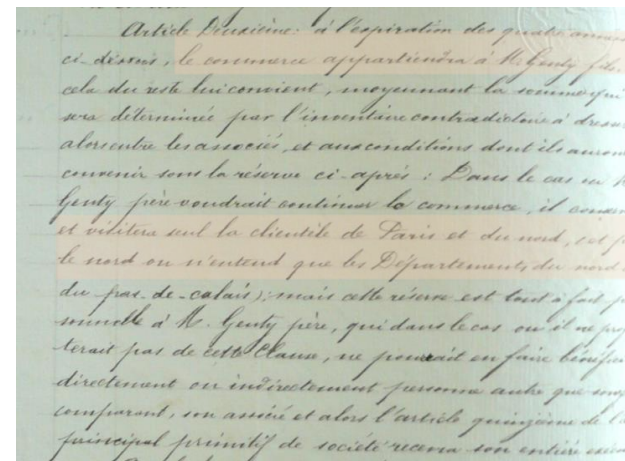 Article Deuxième: à l'expiration des quatre années
ci-dessus, le commerce appartiendra à M. Genty fils
cela du reste lui convient, moyennant la somme qui
sera déterminée par l'inventaire contradictoire à dresser
alors entre les associés, et aux conditions dont ils auron
convenir sous la réserve ci-après: Dans le cas où M
Genty père voudrait continuer le commerce, il
et visitera seul la clientèle de Paris et du nord,
le nord on n'entend que les Départements du nord
du pas-de-calais); mais cette réserve est tout à fait p
sonnelle à M. Genty père, qui dans le cas où il ne pro
terait pas de cette Clause, ne pourrait en faire bénéfici
directement ou indirectement personne autre que
comparant, son associé et alors l'article quinzième de l'a
principal primitif de société recevra son entière